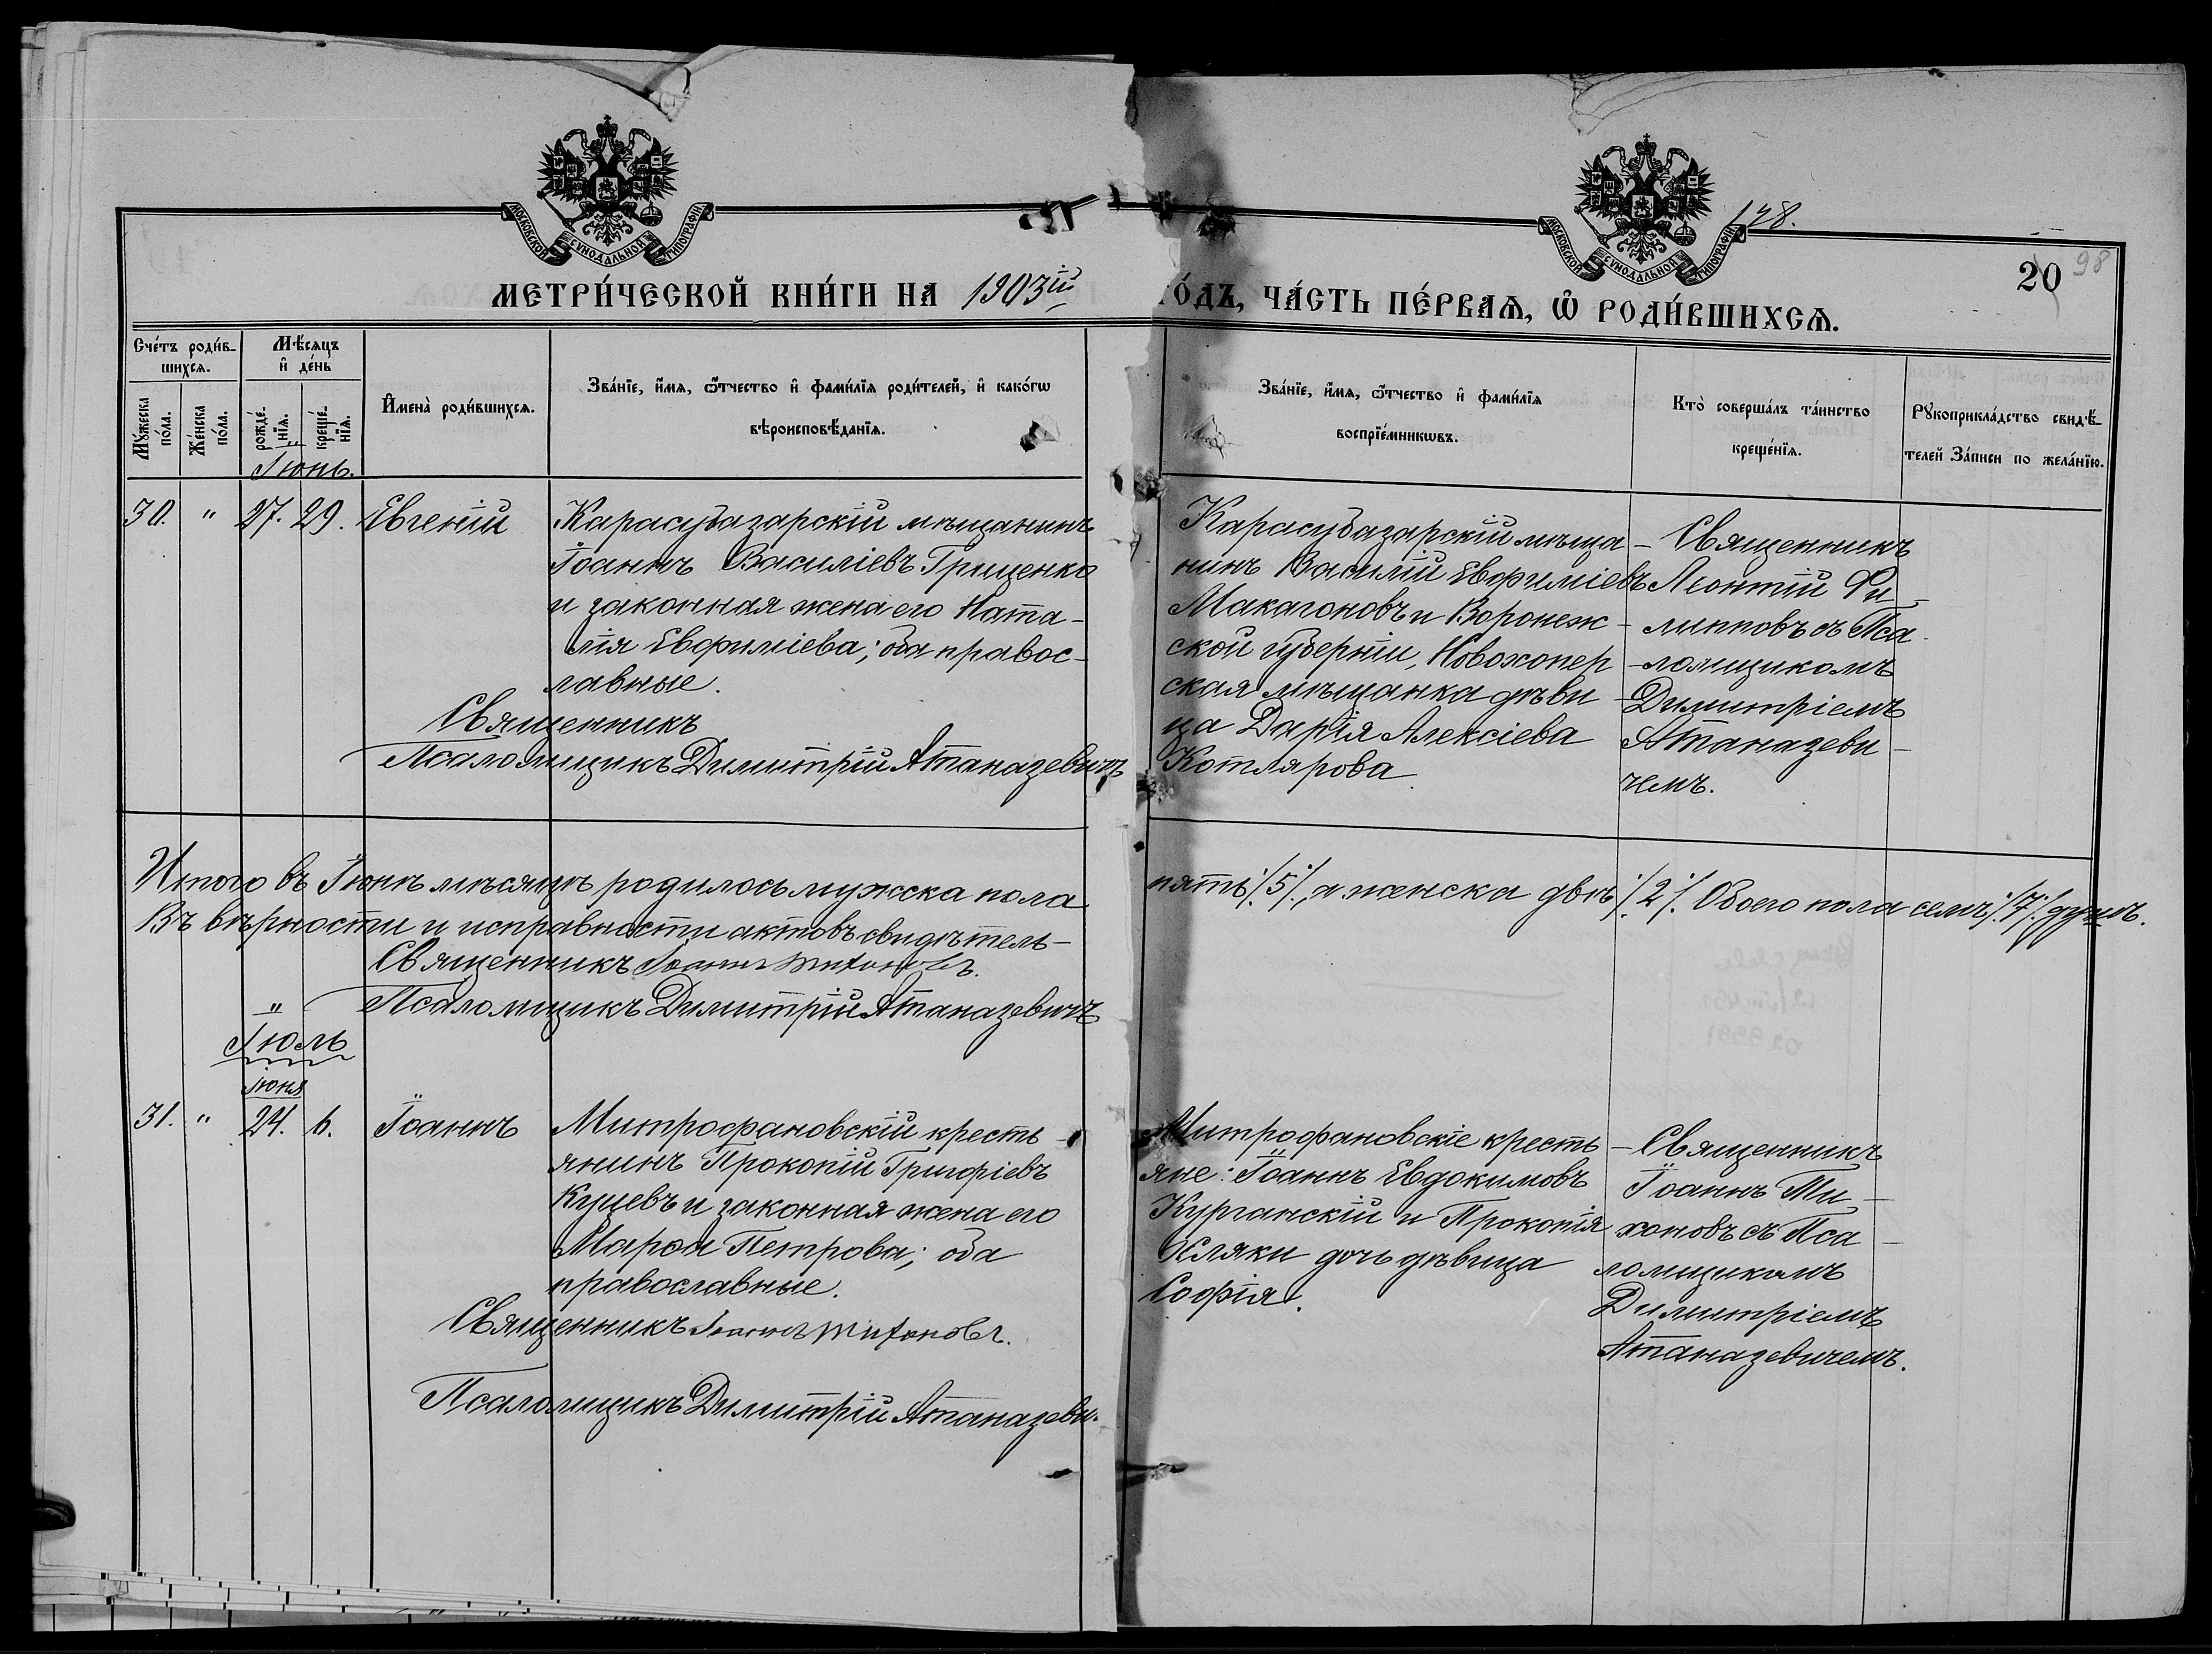 МОСКОВСКОЙ СУНОДАЛЬНОЙ ТИПОГРАФІИ
МОСКОВСКОЙ СУНОДАЛЬНОЙ ТИПОГРАФІИ
128.
20 98
МЕТРИ́ЧЕСКОЙ КНИ́ГИ НА 1903ій ГО́ДЪ, ЧА́СТЬ ПЕ́РВАѦ, Ѡ҆ РОДИ́ВШИХСѦ.
Сче́тъ роди́в-
шихсѧ.
Мꙋ́жеска
по́ла.
Же́нска
по́ла.
Мѣ́сѧцъ
и҆ де́нь
рожде́-
нїѧ.
креще́-
нїѧ.
И҆мена̀ роди́вшихсѧ.
Зва́нїе, и҆́мѧ, ѻ҆́тчество и҆ фами́лїѧ роди́телей, и҆ како́гѡ
вѣроисповѣ́данїѧ.
Зва́нїе, и҆́мѧ, ѻ҆́тчество и҆ фами́лїѧ
воспрїе́мникѡвъ.
Кто̀ соверша́лъ та́инство
креще́нїѧ.
Рꙋкоприкла́дство свидѣ́-
телей За́писи по жела́нїю.
Іюнь.
30. " 27. 29. Евгеній
Карасубазарскій мѣщанинъ
Іоаннъ Василіевъ Гриценко
и законная жена его Ната-
лія Евфиміева; оба правос-
лавные.
Священникъ
Псаломщикъ Димитрій Атаназевичъ
Карасубазарскій мѣща-
нинъ Василій Евфиміевъ
Макагоновъ и Воронеж-
ской губерніи, Новохопер-
ская мѣщанка дѣви-
ца Дарія Алексіева
Котлярова.
Священникъ
Леонтій Фи-
липповъ съ Пса-
ломщикомъ
Димитріемъ
Атаназеви-
чемъ.
Итого въ Іюнѣ мѣсяцѣ родилось мужска пола пять /5/, а женска двѣ /2/. Обоего пола семь /7/ душъ.
Въ вѣрности и исправности актовъ свидѣтель-
Священникъ Іоаннъ Тихоновъ.
Псаломщикъ Димитрій Атаназевичъ
Іюль
іюня
31. " 24. 6. Іоаннъ
Митрофановскій кресть-
янинъ Прокопій Григоріевъ
Куцевъ и законная жена его
Марѳа Петрова; оба
православные.
Священникъ Іоаннъ Тихоновъ.
Псаломщикъ Димитрій Атаназеви.
Митрофановскіе кресть-
яне: Іоаннъ Евдокимовъ
Курганскій и Прокопія
дочь дѣвица
Софія.
Священникъ
Іоаннъ Ти-
хоновъ съ Пса-
ломщикомъ
Димитріемъ
Атаназевичемъ.